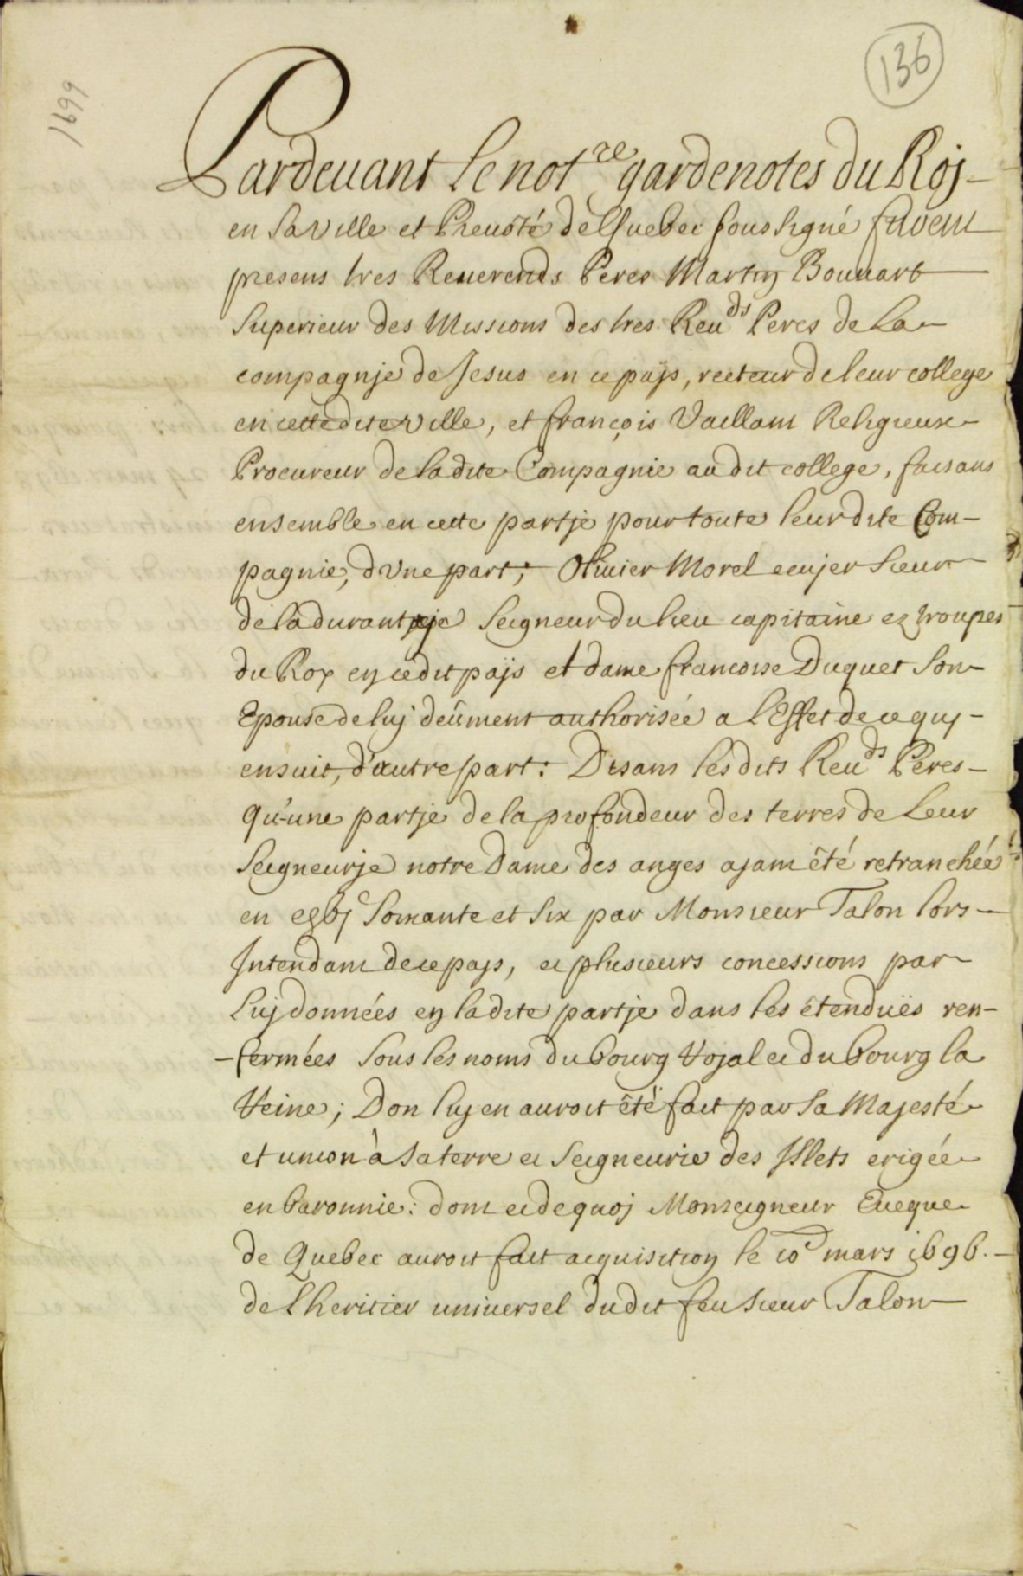 136
1699
Pardeuant Le not.re gardenotes du Roj
en sa Ville et Preuôté de Quebec sous signé furent
presens tres Reuerends Peres Martin Bouuart
Superieur des Missions des tres Reu.ds Peres de La
compagnje de Jesus en ce païs, recteur de leur college
en cette dite Ville, et françois Vaillant Religieux
Procureur de ladite Compagnie audit college, faisans
ensemble en cette partje pour toute leur dite Com-
pagnie, d'vne part; Oliuier Morel ecujer sieur
de la durantaje Seigneur du lieu capitaine ez troupes
du Roy en cedit païs et dame francoise Duquet son
Epouse de luj deûment authorisée a l'Effet de ce quj
ensuit, d'autre part: Disans lesdits Reu.ds Peres
qu'une partje de la profondeur des terres de Leur
Seigneurje notre Dame des anges ajant êté retranchée
en soixante et six par Monsieur Talon lors
Intendant de ce pays, et plusieurs concessions par
luj données en ladite partje dans les étenduës ren-
-fermées sous les noms du bourg Rojal et du bourg la
Reine; Don luj en auroit êté fait par sa Majesté
et union à sa terre et Seigneurie des Jslets erigée
en baronnie: dont et de quoj Monseigneur Eueque
de Quebec auroit fait acquisition le 10e mars 1696.
de L'heritier uniuersel dudit feu sieur Talon